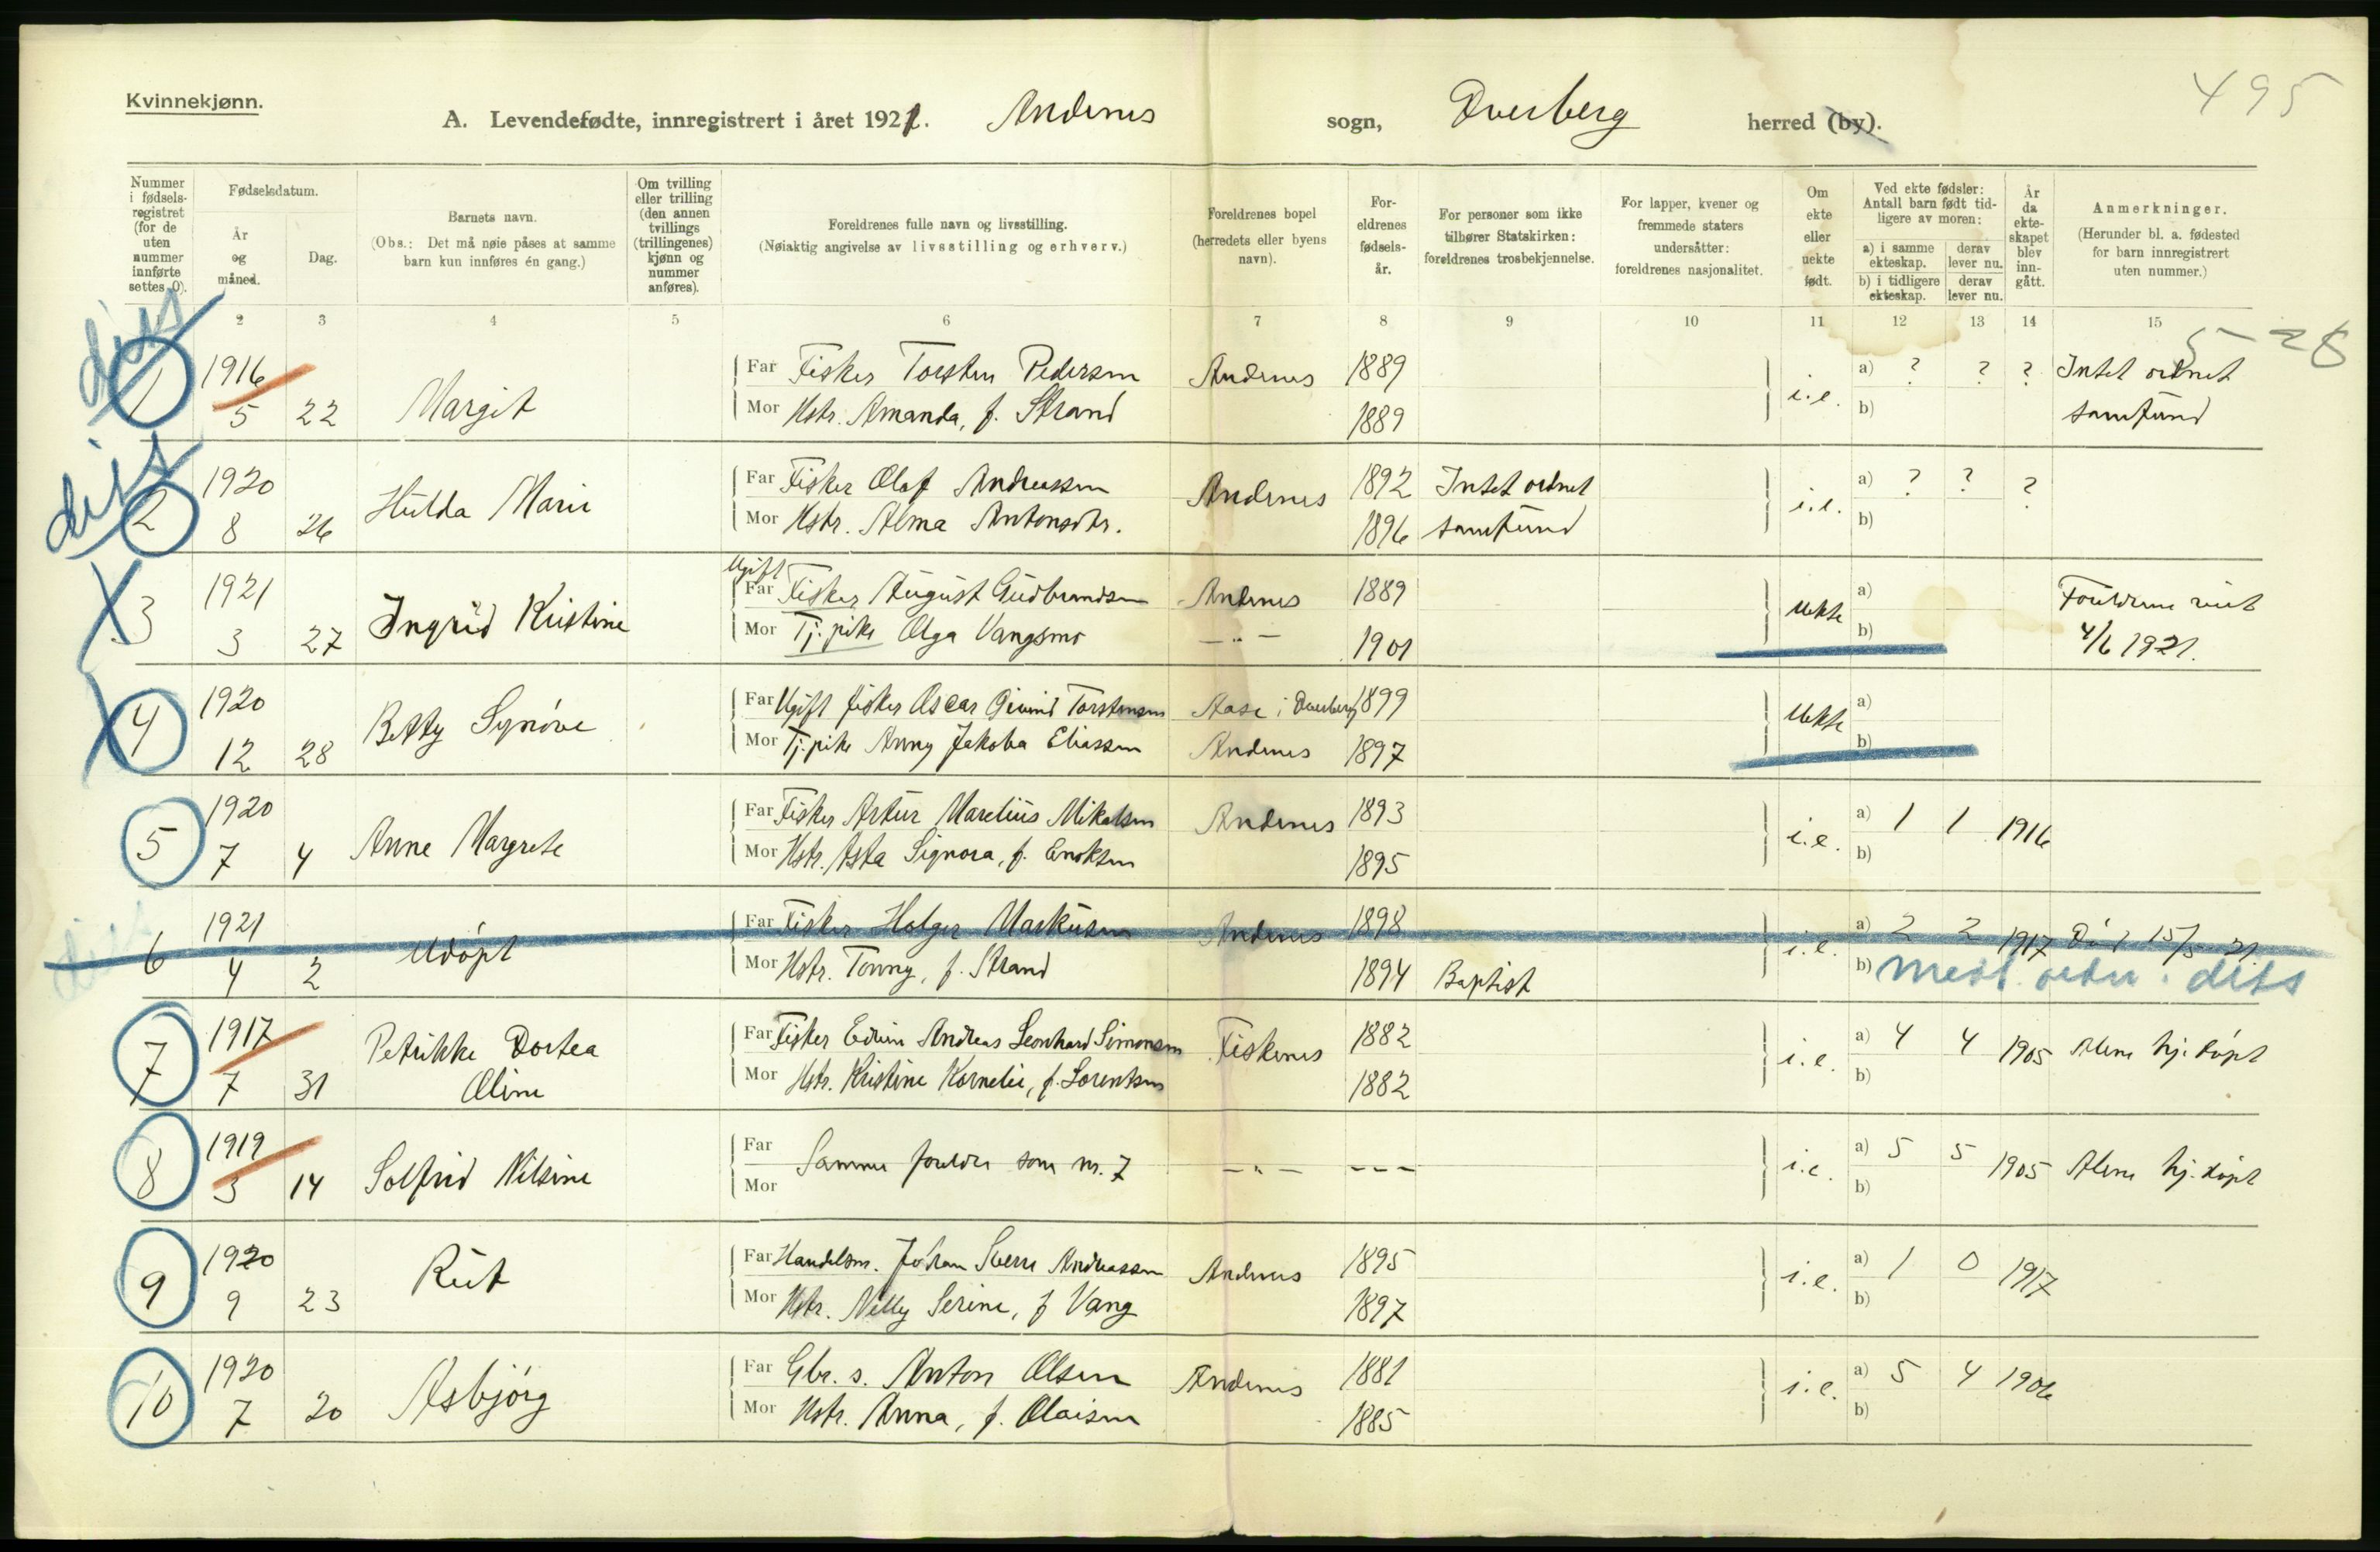 Kvinnekjønn.
495
A. Levendefødte, innregistrert i året 1921. Andenes sogn, Dverberg herred (by).
Nummer i fødsels-registret (for de uten nummer innførte settes 0).
Fødselsdatum.
År og måned.
Dag.
Barnets navn.
(Obs.: Det må nøie påses at samme barn kun innføres én gang.)
Om tvilling eller trilling (den annen tvillings (trillingenes) kjønn og nummer anføres).
Foreldrenes fulle navn og livsstilling.
(Nøiaktig angivelse av livsstilling og erhverv.)
Foreldrenes bopel (herredets eller byens navn).
For-eldrenes fødsels-år.
For personer som ikke tilhører Statskirken: foreldrenes trosbekjennelse.
For lapper, kvener og fremmede staters undersåtter: foreldrenes nasjonalitet.
Om ekte eller uekte født.
Ved ekte fødsler: Antall barn født tid-ligere av moren:
a) i samme ekteskap. derav lever nu.
b) i tidligere ekteskap. derav lever nu.
År da ekte-skapet blev inn-gått.
Anmerkninger.
(Herunder bl. a. fødested for barn innregistrert uten nummer.)
2 3 4 5 6 7 8 9 10 11 12 13 14 15
5-28
diss
1 1916 5 22 Margit
Far Fisker Torsten Pedersen Andenes 1889 i.e. a) ? ? ? Intet ordnet
Mor Hstr. Amanda, f. Strand 1889 b) samfund
diss
2 1920 8 26 Hulda Marie
Far Fisker Olaf Andreassen Andenes 1892 Intet ordnet i.e. a) ? ? ?
Mor Hstr. Alma Antonsdtr. 1896 samfund b)
3 1921 3 27 Ingrid Kristine
Ugift
Far Fisker August Gudbrandsen Andenes 1889 Uekte a) Foreldrene viet
Mor Tj.pike Olga Vangsmo — " — 1901 b) 4/6 1921.
4 1920 12 28 Betty Synöve
Far Ugift fisker Oscar Eivind Torstensen Aase i Dverberg 1899 Uekte a)
Mor Tj.pike Anny Jakoba Eliassen Andenes 1897 b)
5 1920 7 4 Anne Margrete
Far Fisker Artur Marelius Mikalsen Andenes 1893 i.e. a) 1 1 1916
Mor Hstr. Asta Signora, f. Enoksen 1895 b)
6 1921 4 2 Udöpt
Far Fisker Holger Markusen Andenes 1898 i.e. a) 2 2 1917 Död 15/5 21
Mor Hstr. Tonny, f. Strand 1894 Baptist b) diss
7 1917 7 31 Petrikke Dortea Oline
Far Fisker Edvin Andreas Leonhard Simonsen Fiskenes 1882 i.e. a) 4 4 1905 Alene hj. döpt
Mor Hstr. Kristine Kornelie, f. Lorentsen 1882 b)
8 1919 3 14 Solfrid Nilsine
Far Mor Samme foreldre som nr. 7 — " — - - - i.e. a) 5 5 1905 Alene hj. döpt
b)
9 1920 9 23 Rut
Far Handelsm. Johan Sverre Andreassen Andenes 1895 i.e. a) 1 0 1917
Mor Hstr. Nelly Serine, f Vang 1897 b)
10 1920 7 20 Asbjörg
Far Gbr. s. Anton Olsen Andenes 1881 i.e. a) 5 4 1906
Mor Hstr. Anna, f. Olaisen 1885 b)